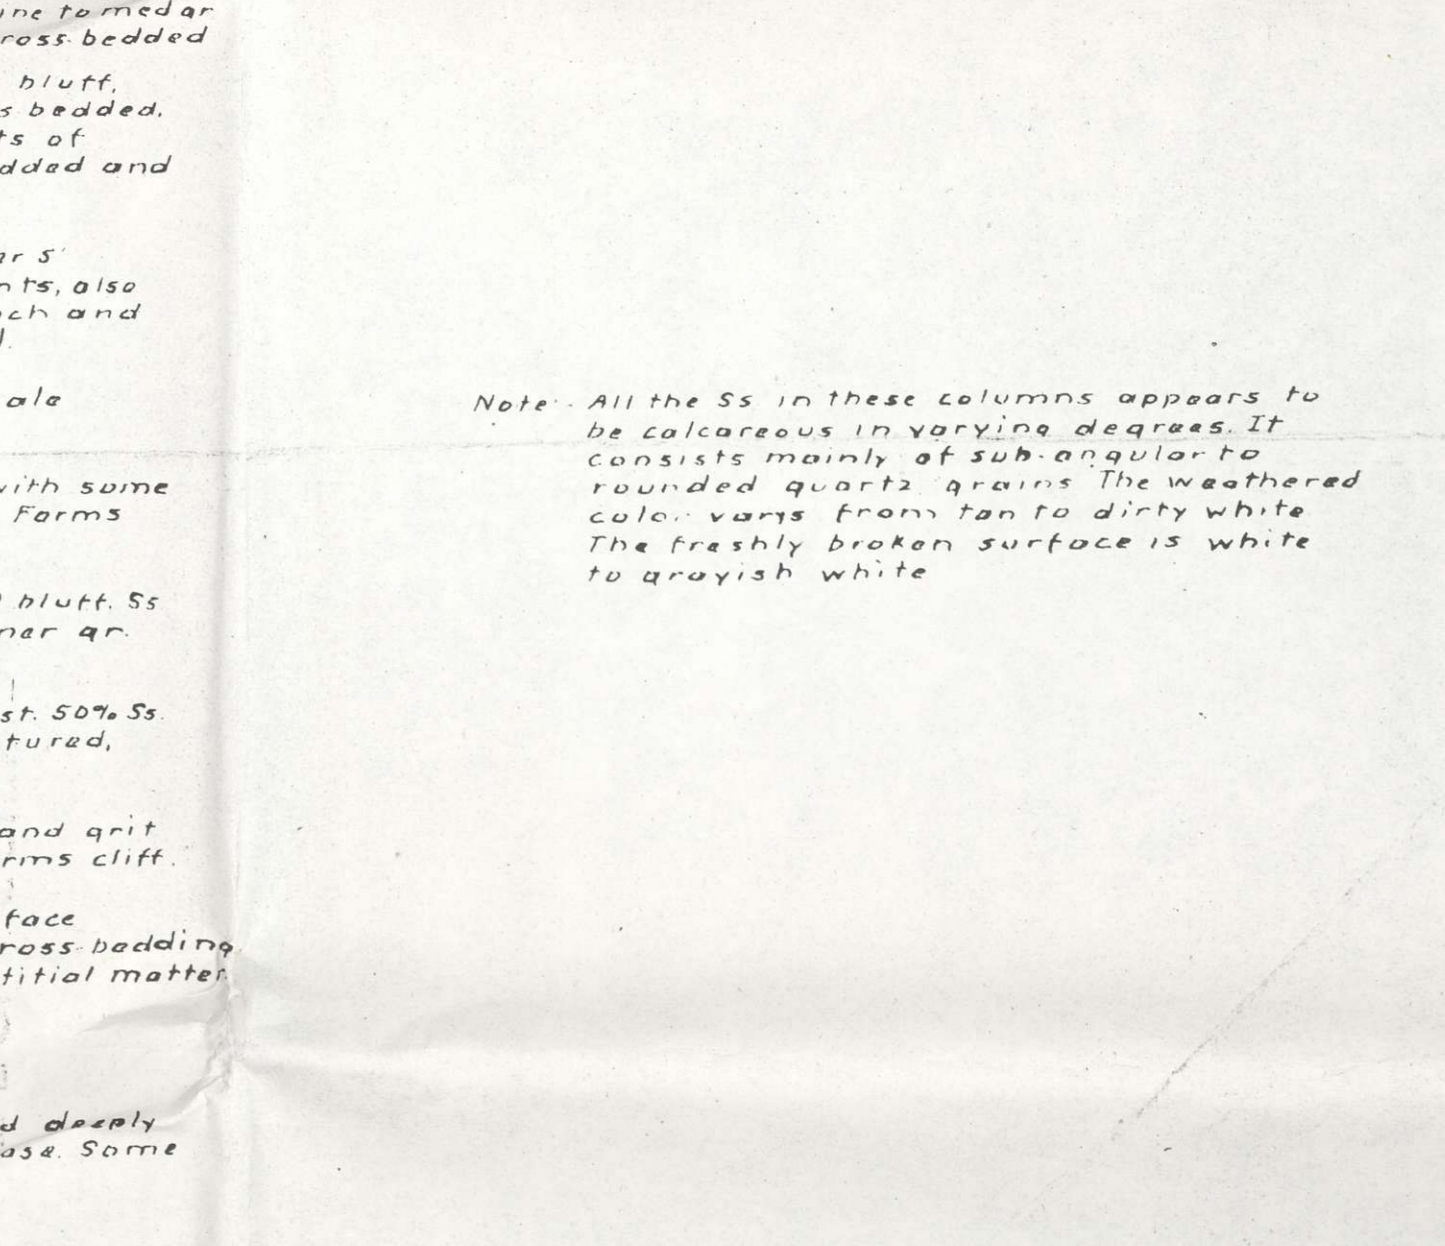 ine to med gr
ross-bedded
bluff,
s bedded.
ts of
dded and
ar S
nts, also
ch and
ale
with some
Forms
bluff. Ss
ner gr.
st. 50% Ss.
tured,
and grit
rms cliff.
face
ross-bedding
titial matter
d deeply
ase. Some
Note - All the Ss in these columns appears to
be calcareous in varying degrees. It
consists mainly of sub-angular to
rounded quartz grains The weathered
color varys from tan to dirty white
The freshly broken surface is white
to grayish white